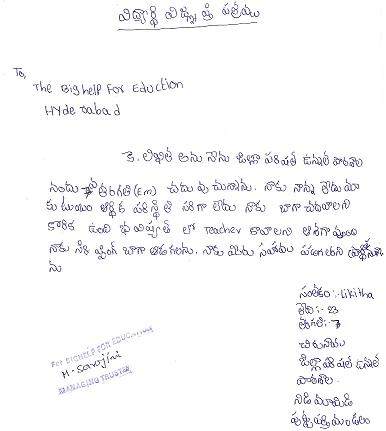 విద్యార్థి విజ్ఞప్తి పత్రము
To,
The Bighelp For Eduction
Hyderabad
కె. లిఖిత అను నేను జిల్లా పరిషత్ ఉన్నత పాఠశాల
నందు 7వ తరగతి (Em) చదువుచున్నాను. నాకు నాన్న లేడు మా
కుటుంబం ఆర్థిక పరిస్థితి సరిగా లేదు నాకు బాగా చదవాలని
కోరిక ఉంది భవిష్యత్ లో Teacher కావాలని ఆశగా వుంది
నాకు బాగా ఆడగలను. నాకు మీరు సహాయ పడగలరని
ను
సంతకం :- Likitha
తేది :- 23
తరగతి :- 7
చిరునామా
జిల్లా పరిషత్ ఉన్నత
పాఠశాల.
నిడిమామిడి
పుట్టపర్తి మండలం
For BIGHELP FOR EDUCATION
M. Sarojini
MANAGING TRUSTEE